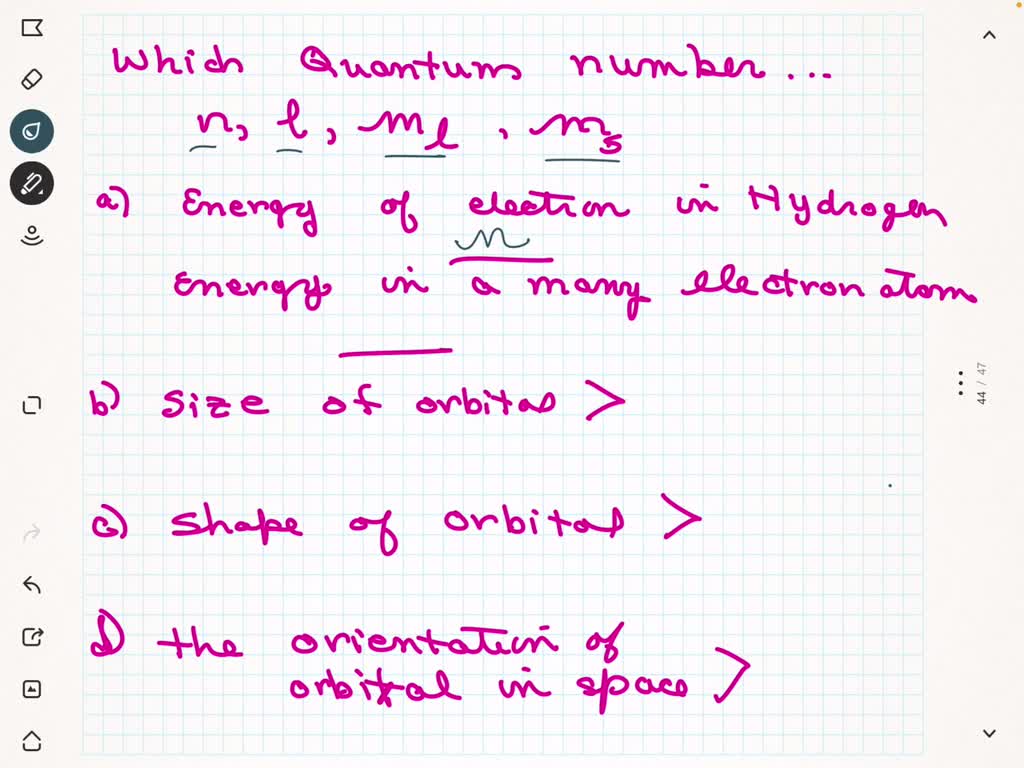 Which Quantum number...
n, l, ml, ms
a) Energy of electron in Hydrogen
n
Energy in a many electron atom
b) Size of orbital >
c) Shape of orbital >
d) the orientation of
orbital in space >
44 / 47